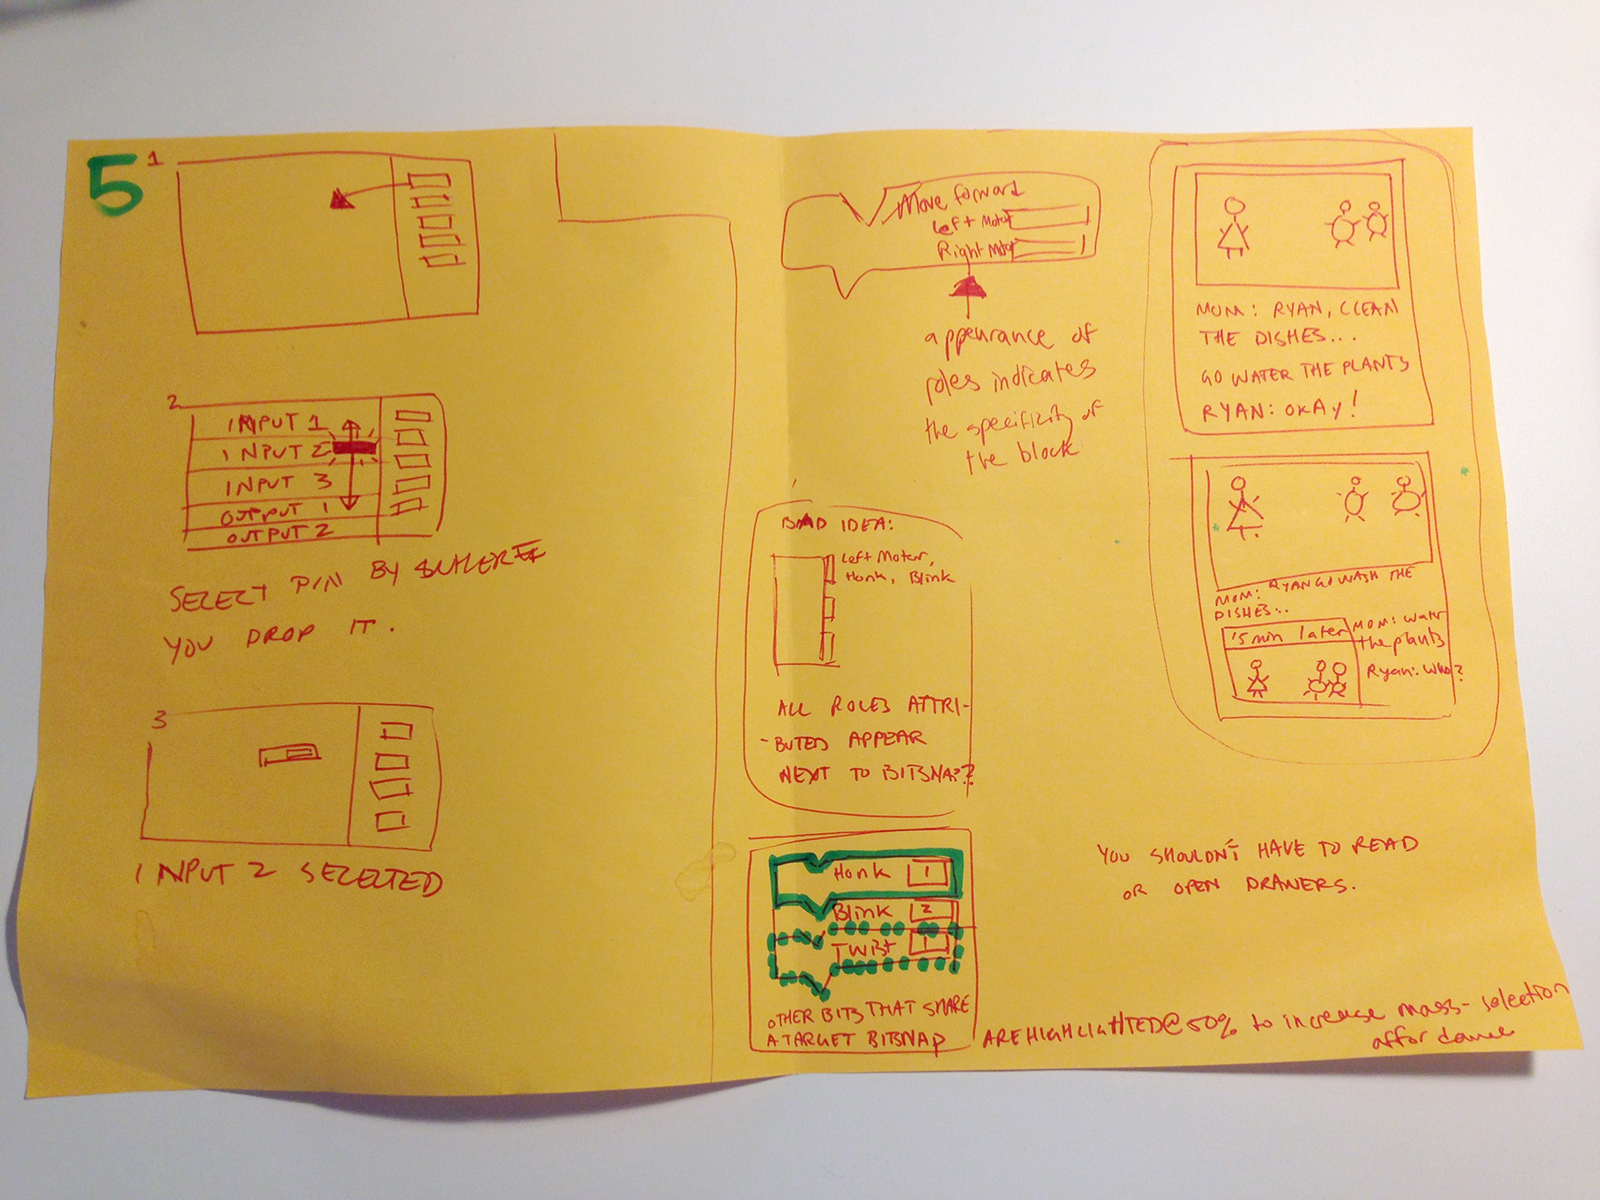 5
1
2
INPUT 1
INPUT 2
INPUT 3
OUTPUT 1
OUTPUT 2
SELECT PIN BY
YOU DROP IT.
3
INPUT 2 SELECTED
Move forward
Left Motor
Right Motor
appearance of
roles indicates
the specificity of
the block
BAD IDEA:
Left Motor,
Honk, Blink
ALL ROLES ATTRI-
-BUTED APPEAR
NEXT TO BITSNAP?
Honk 1
Blink 2
Twist 1
OTHER BITS THAT SHARE
A TARGET BITSNAP
ARE HIGHLIGHTED @ 50% to increase mass-selection
affordance
MOM: RYAN, CLEAN
THE DISHES...
GO WATER THE PLANTS
RYAN: OKAY!
MOM: RYAN GO WASH THE
DISHES...
15 min later
MOM: Water
the plants
Ryan: Who?
YOU SHOULDN'T HAVE TO READ
OR OPEN DRAWERS.